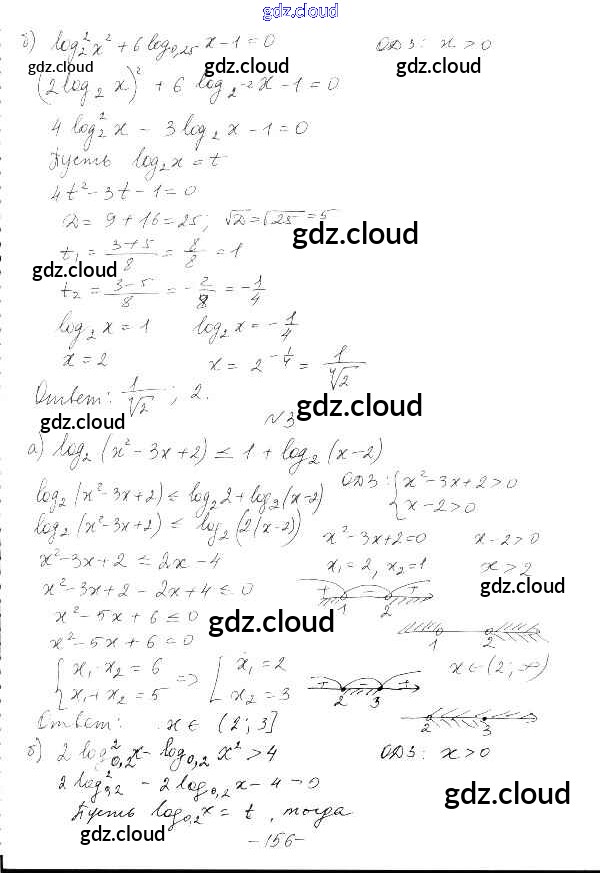 gdz.cloud
б) log₂²x² + 6 log₀,₂₅ x − 1 = 0 ОДЗ: x > 0
gdz.cloud gdz.cloud
(2 log₂ x)² + 6 log₂₋₂ x − 1 = 0
4 log₂² x − 3 log₂ x − 1 = 0
Пусть log₂ x = t
4t² − 3t − 1 = 0
D = 9 + 16 = 25; √D = √25 = 5
gdz.cloud
t₁ = (3+5)/8 = 8/8 = 1
gdz.cloud
t₂ = (3−5)/8 = −2/8 = −1/4
log₂ x = 1 log₂ x = −1/4
x = 2 x = 2^(−1/4) = 1/⁴√2
Ответ: 1/⁴√2 ; 2.
gdz.cloud
gdz.cloud
№3
а) log₂ (x² − 3x + 2) ≤ 1 + log₂ (x − 2)
log₂ (x² − 3x + 2) ≤ log₂ 2 + log₂ (x − 2) ОДЗ: { x² − 3x + 2 > 0
x − 2 > 0
log₂ (x² − 3x + 2) ≤ log₂ (2(x − 2))
x² − 3x + 2 = 0 x − 2 > 0
x² − 3x + 2 ≤ 2x − 4 x₁ = 2, x₂ = 1 x > 2
gdz.cloud
x² − 3x + 2 − 2x + 4 ≤ 0 + − + 1 2
x² − 5x + 6 ≤ 0
gdz.cloud
1 2
x² − 5x + 6 = 0
x ∈ (2; +∞)
{ x₁ · x₂ = 6 => [ x₁ = 2
x₁ + x₂ = 5 x₂ = 3
+ − + 2 3
Ответ: x ∈ (2; 3]
2 3
б) 2 log²₀,₂ x − log₀,₂ x² > 4 ОДЗ: x > 0
2 log²₀,₂ − 2 log₀,₂ x − 4 > 0
gdz.cloud
Пусть log₀,₂ x = t, тогда
gdz.cloud
−156−